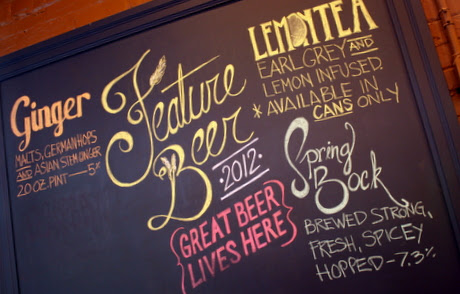 Ginger
MALTS, GERMAN HOPS
AND ASIAN STEM GINGER
20 OZ PINT — 5%
Feature
Beer
2012
{GREAT BEER
LIVES HERE}
LEMONTEA
EARL GREY AND
LEMON INFUSED.
* AVAILABLE IN
CANS ONLY
Spring
Bock
BREWED STRONG,
FRESH, SPICEY
HOPPED - 7.3%